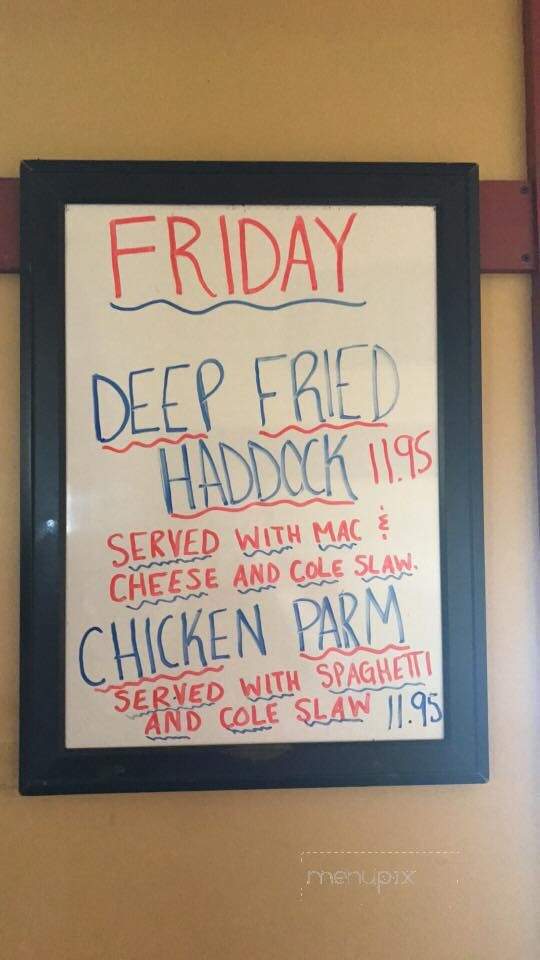 FRIDAY
DEEP FRIED
HADDOCK 11.95
SERVED WITH MAC &
CHEESE AND COLE SLAW.
CHICKEN PARM
SERVED WITH SPAGHETTI
AND COLE SLAW 11.95
menupix